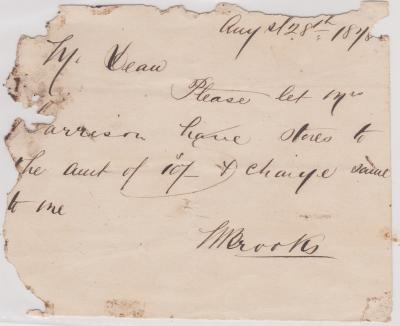 Augst 28th 1878
Mr Dean
Please let Mrs
arrison have stores to
the amt of 10/ & charge same
to me
Brooks